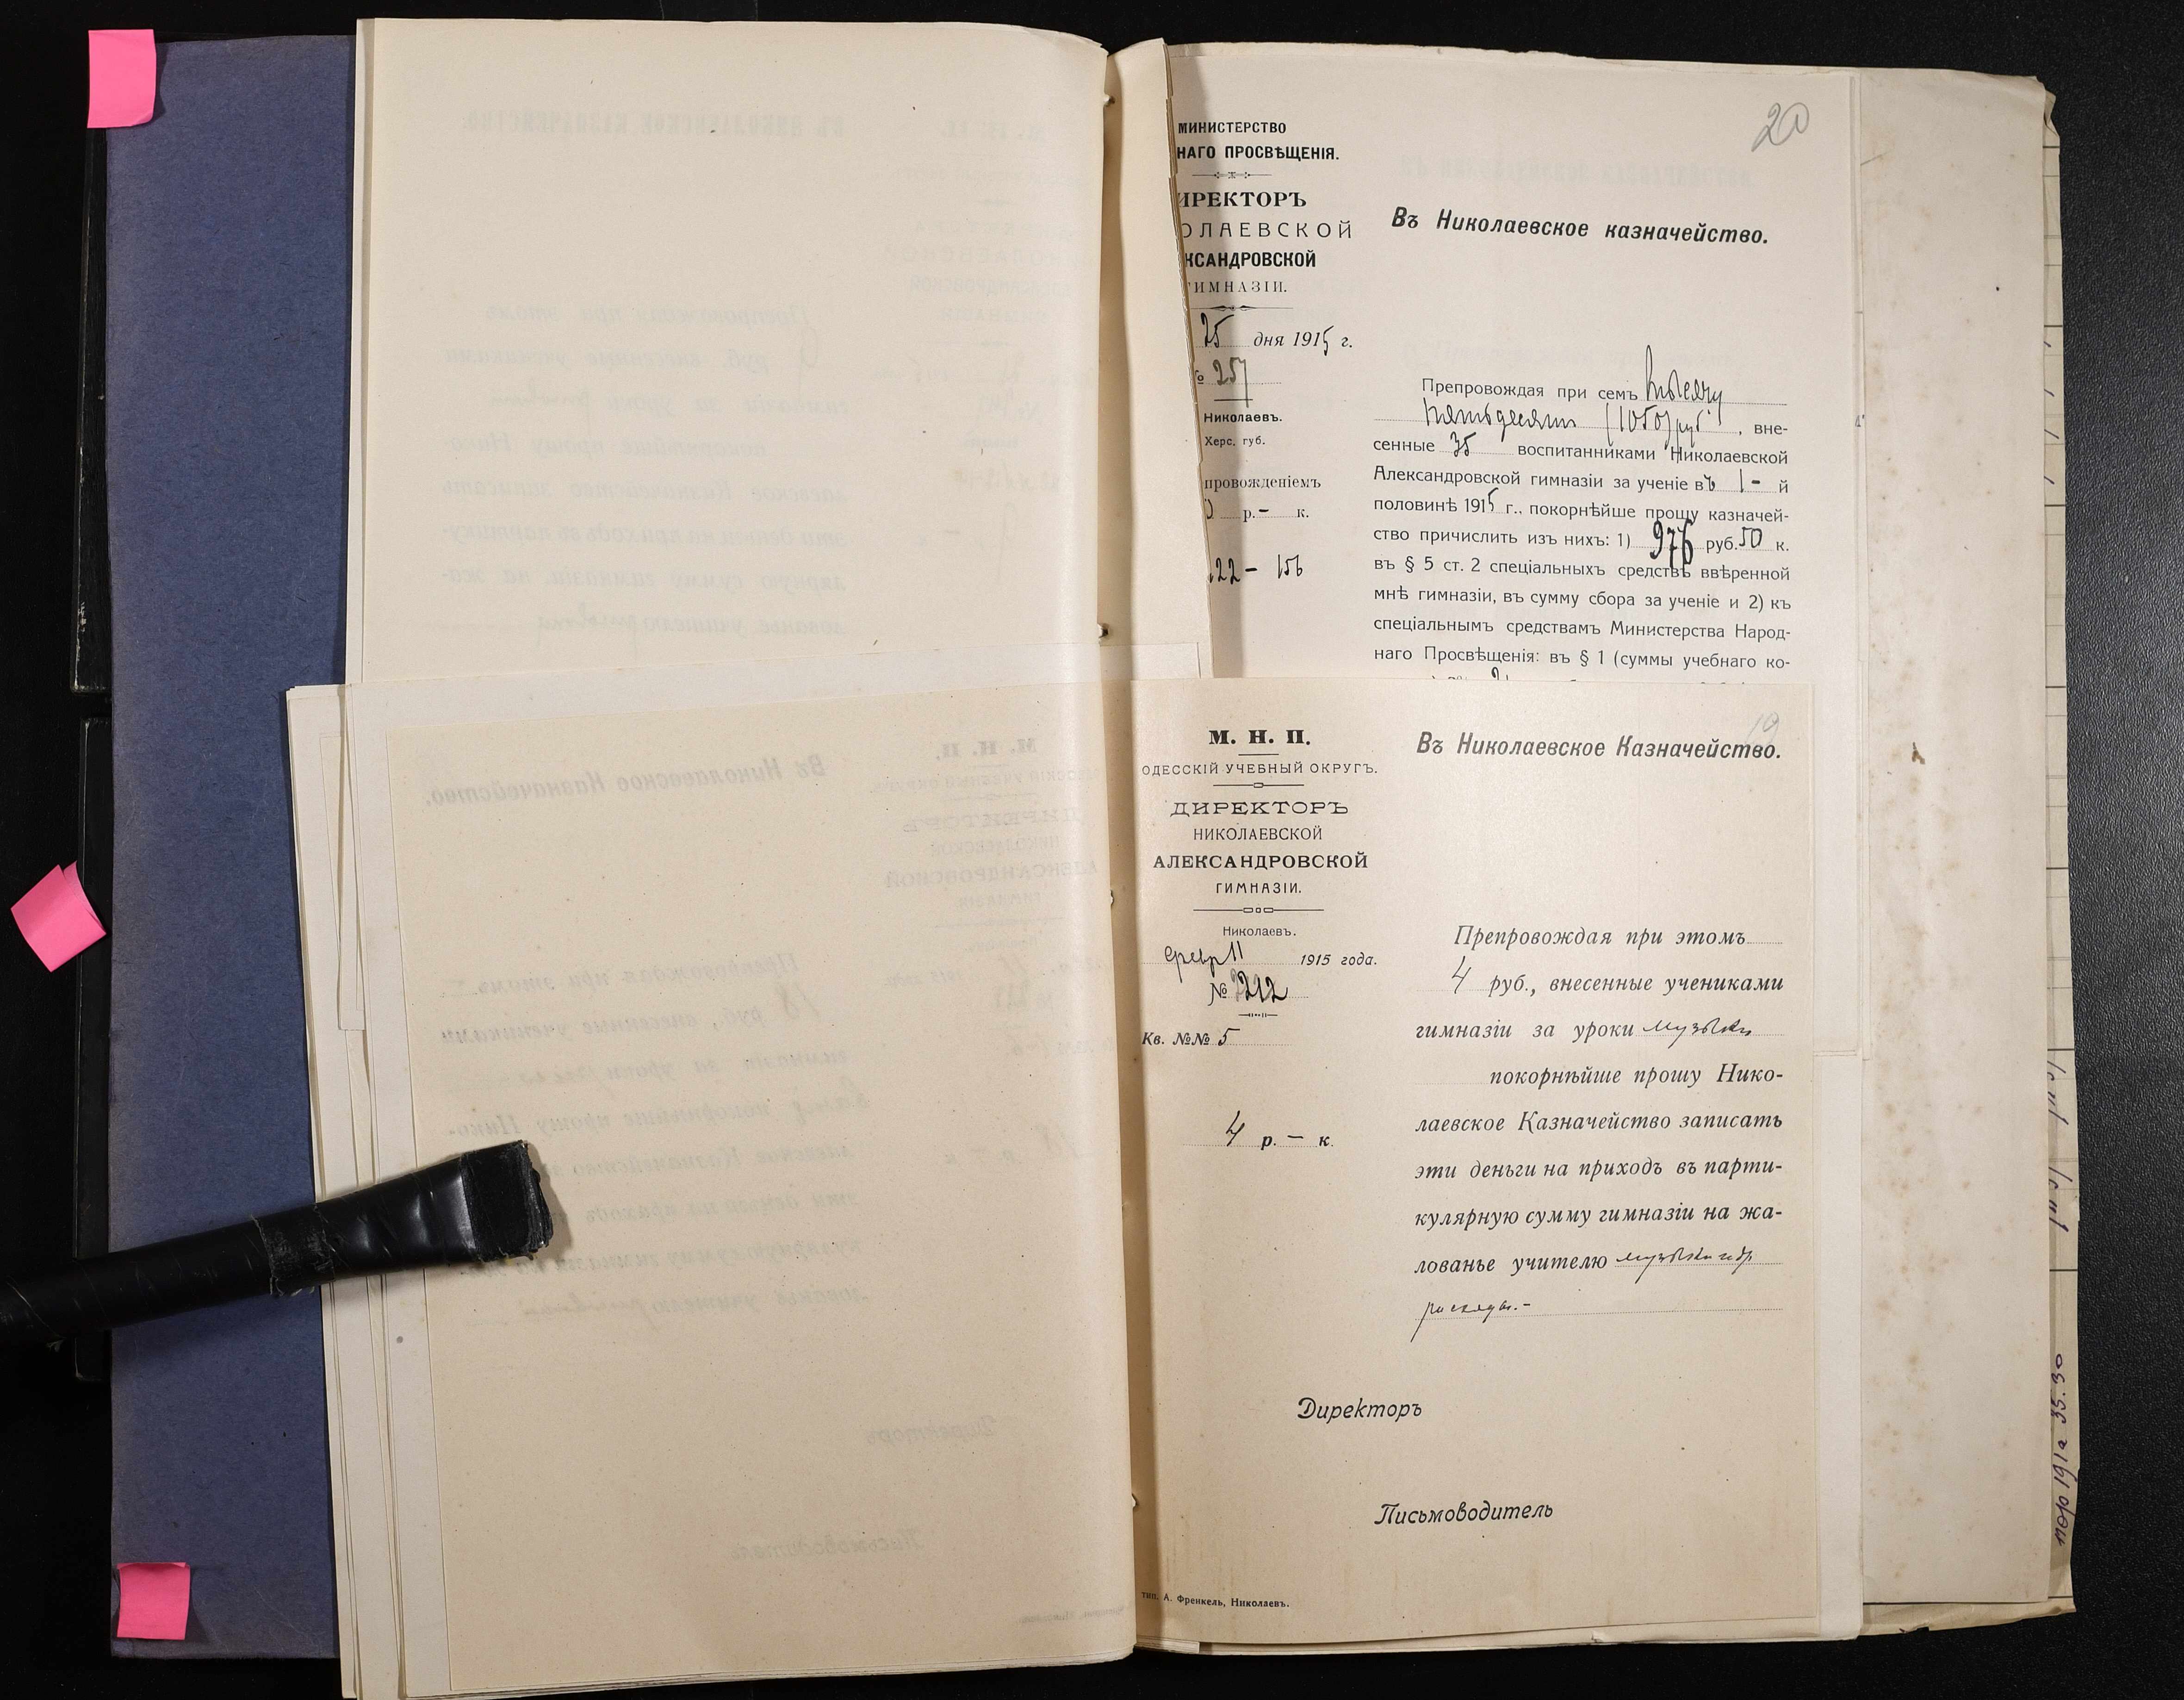 20
МИНИСТЕРСТВО
НАГО ПРОСВѢЩЕНІЯ.
ИРЕКТОРЪ
ОЛАЕВСКОЙ
КСАНДРОВСКОЙ
ГИМНАЗІИ.
25 дня 1915 г.
257
Николаевъ.
Херс. губ.
провожденіемъ
р.– к.
122 – 156
Въ Николаевское казначейство.
Препровождая при семъ тысячу
пятьдесят (1050) руб., вне-
сенные 35 воспитанниками Николаевской
Александровской гимназіи за ученіе въ 1-й
половинѣ 1915 г., покорнѣйше прошу казначей-
ство причислить изъ нихъ: 1) 976 руб. 50 к.
въ § 5 ст. 2 спеціальныхъ средствъ ввѣренной
мнѣ гимназіи, въ сумму сбора за ученіе и 2) къ
спеціальнымъ средствамъ Министерства Народ-
наго Просвѣщенія: въ § 1 (суммы учебнаго ко-
19
М. Н. П.
ОДЕССКІЙ УЧЕБНЫЙ ОКРУГЪ.
ДИРЕКТОРЪ
НИКОЛАЕВСКОЙ
АЛЕКСАНДРОВСКОЙ
ГИМНАЗІИ.
Николаевъ.
Февр 11 1915 года.
№ 212
Кв. №№ 5
4 р. – к.
Въ Николаевское Казначейство.
Препровождая при этомъ
4 руб., внесенные учениками
гимназіи за уроки музыки
покорнѣйше прошу Нико-
лаевское Казначейство записать
эти деньги на приходъ въ парти-
кулярную сумму гимназіи на жа-
лованье учителю музыки и др
расходы.–
Директоръ
Письмоводитель
тип. А. Френкель, Николаевъ.